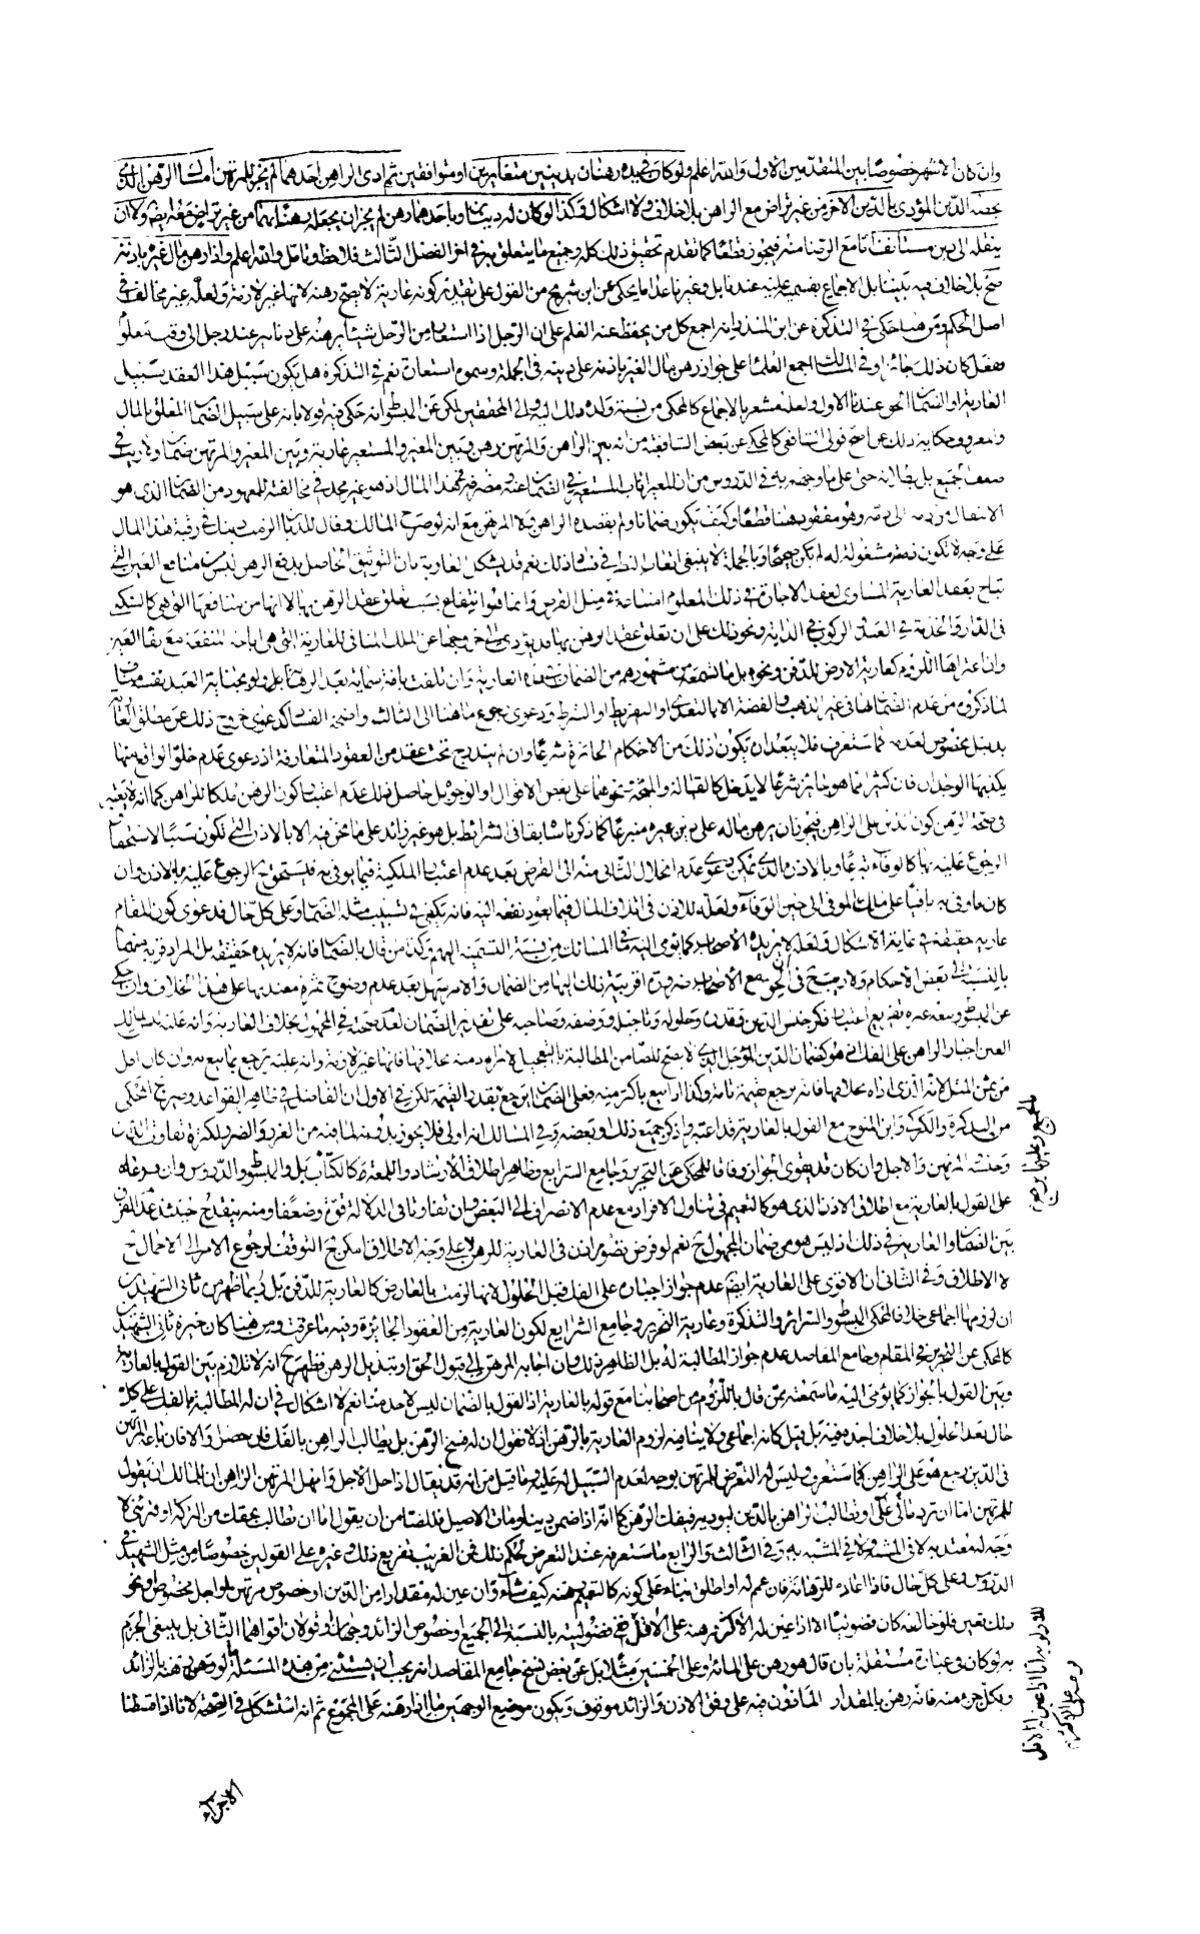 وان كان الاشهر خصوصا بين المتقدمين الاول والله اعلم ولو كان في يده رهنان بدينين متغايرين او متوافقين ثم ادى الراهن احدهما لم يجز للمرتهن امساك الرهن الذي
يخصه الدين المؤدى بالدين الاخر من غير تراض مع الراهن بلا خلاف ولا اشكال وكذا لو كان له دينان وباحدهما رهن لم يجز ان يجعله رهنا بهما من غير تراض قطعا ايضا ولا ان
ينقله الى دين مستانف نعم مع الرضا منه فيجوز قطعا كما تقدم تحقيق ذلك كله وجميع ما يتعلق به في اخر الفصل الثالث فلاحظ وتامل والله اعلم واذا رهن مال غيره باذنه
صح بلا خلاف فيه بيننا بل الاجماع بقسميه عليه عندنا بل وغيرنا عدا ما يحكى عن ابن شريح من القول على تقدير كونه عارية لا يصح رهنه لانها غير لازمة ولعله غير مخالف في
اصل الحكم ومن هنا حكى في التذكرة عن ابن المنذر انه اجمع كل من يحفظ عنه العلم على ان الرجل اذا استعار من الرجل شيئا يرهنه على دنانير عند رجل الى وقت معلوم
ففعل كان ذلك جائزا وفي المسالك اجمع العلماء على جواز رهن مال الغير باذنه على دينه في الجملة وسموه استعارة نعم في التذكرة هل يكون سبيل هذا العقد سبيل
العارية او الضمان الحق عندنا الاول ولعله مشعر بالاجماع كالمحكى من نسبة ولده ذلك اليه والى المحققين لكن عن المبسوط انه حكى فيه قولا بانه على سبيل الضمان المعلق بالمال
والمعروف حكاية ذلك عن اصح قولى الشافعي كالمحكى عن بعض الشافعية من انه بين الراهن والمرتهن رهن وبين المعير والمستعير عارية وبين المعير والمرتهن ضمان ولا ريب في
ضعف الجميع بل بطلانه حتى على ما وجهه به في الدروس من ان المعير اناب المستعير في الضمان عنه ومصرفه في هذا المال اذ هو غير مجد في مخالفته للمعهود من الضمان الذي هو
الانتقال من ذمة الى ذمة وهو مفقود هنا قطعا وكيف يكون ضمانا ولم يقصده الراهن ولا المرتهن مع انه لو صرح المالك وقال الزمت دينك في رقبة هذا المال
على وجه لا تكون ذمته مشغولة له لم يكن صحيحا وبالجملة لا ينبغي اتعاب النظر في فساد ذلك نعم قد يشكل العارية بان التوثيق الحاصل بدفع الرهن ليس من منافع العين التي
تباح بعقد العارية المساوى لعقد الاجارة في ذلك المعلوم
في الدار والخدمة في العبد والركوب في الدابة ونحو ذلك على ان تعلق عقد الرهن بها قد يؤدى الى خروجها عن الملك المنافي للعارية التي هي اباحة المنفعة مع بقاء العين
وان اعتراها اللزوم كعارية الارض للدفن ونحوه بل ما تسمعه من مشهورهم من الضمان بهذه العارية وان تلفت بافة سماوية بعد الرهن بل ولو بجناية العبد نفسه مناف
لما ذكروه من عدم الضمان لها في غير الذهب والفضة الا بالتعدى او التفريط او الشرط ودعوى رجوع ما هنا الى الثالث واضحة الفساد كدعوى خروج ذلك عن مطلق العارية
بدليل مخصوص لعدمه كما ستعرف فلا يبعد ان يكون ذلك من الاحكام الجائزة شرعا وان لم يندرج تحت عقد من العقود المتعارفة اذ دعوى عدم خلو الواقع منها
يكذبها الوجدان فان كثيرا مما هو جائز شرعا لا يدخل كالقبالة والمنحة ونحوهما على بعض الاقوال او الوجوه بل حاصل ذلك عدم اعتبار كون الرهن ملكا للراهن كما انه لا يعتبر
في صحة الرهن كون الدين على الراهن فيجوز ان يرهن ماله على دين غيره متبرعا كما ذكرناه سابقا في الشرائط بل هو غير زائد على ما نحن فيه الا بالاذن التي تكون سببا لاستحقاق
الرجوع عليه بها كالوفاء تبرعا وبالاذن
كان ما وفى به باقيا على ملك الموفى الى حين الوفاء ولعله للاذن في اتلاف المال فيما يعود نفعه اليه فانه يكفى في تسبيب مثله الضمان وعلى كل حال فدعوى كون المقام
عارية حقيقة في غاية الاشكال ولعله لا يريده الاصحاب كما يومى اليه في المسالك من نسبة التسمية اليهم وكذا من قال بالضمان فانه لا يريده حقيقة بل المراد قربه منهما
بالنسبة الى بعض الاحكام ولا ريب في ان الحق مع الاصحاب ضرورة اقربية ذلك اليها من الضمان والامر سهل بعد عدم وضوح ثمرة معتد بها على هذا الخلاف وان حكى
عن المبسوط وتبعه غيره تفريع اعتبار ذكر جنس الدين وقدره وحلوله وتاجيله ووصفه وصاحبه على تقدير الضمان لعدم صحته في المجهول بخلاف العارية وانه على
اجبار الراهن على الفك اذ هو كضمان الدين المؤجل الذي لا يصح للضامن المطالبة بالتعجيل لابراء ذمته بخلافها فانها غير لازمة وانه عليه يرجع بما بيع به وان كان اقل
من ثمن المثل لانه الذي اداه بخلافها فانه يرجع بقيمة تامة وكذا لو بيع باكثر منه فعلى الضمان يرجع بقدر القيمة لكن في الاول ان الفاضل في ظاهر القواعد وصريح المحكى
من التذكرة والكركي وابن المتوج مع القول بالعارية قد اعتبروا ذكر جميع ذلك او بعضه وفي المسالك انه اولى فلا يجوز بدونه لما فيه من الغرر والضرر لكثرة تفاوت الدين
وجنسه المرتهن والاجل وان كان قد يقوى الجواز وفاقا للمحكى عن التحرير وجامع الشرايع وظاهر اطلاق الارشاد واللمعة كالكتاب بل والمبسوط والدروس وان فرعاه
على القول بالعارية مع اطلاق الاذن الذي هو كالتعميم في تناول الافراد مع عدم الانصراف الى البعض وان تفاوتا في الدلالة قوة وضعفا ومنه ينقدح حينئذ عدم الفرق
بين الضمان والعارية في ذلك اذ ليس هو من ضمان المجهول ح نعم لو فرض تصور اذن في العارية للرهن لا على وجه الاطلاق امكن ح التوقف لرجوع الامر الى الاجمال ح
لا الاطلاق وفي الثاني ان الاقوى على العارية ايضا عدم جواز اجباره على الفك قبل الحلول لانها لزمت بالعارض كالعارية للدفن بل ربما ظهر من ثاني الشهيدين
ان لزومها اجماعي خلافا لمحكى المبسوط والسرائر والتذكرة وعارية التحرير وجامع الشرايع لكون العارية من العقود الجائزة وفيه ما عرفت ومن هنا كان خيرة ثاني الشهيدين
كالمحكى عن التحرير في المقام وجامع المقاصد عدم جواز المطالبة له بل الظاهر ذلك وان اجابه المرتهن الى قبول الحق او تبديل الرهن فظهر ح انه لا تلازم بين القول بالعارية
وبين القول بالجواز كما يومى اليه ما سمعته ممن قال باللزوم من اصحابنا مع قوله بالعارية اذ القول بالضمان ليس لاحد منا نعم لا اشكال في ان له المطالبة بالفك على كل
حال بعد الحلول بلا خلاف اجده فيه بل قيل كانه اجماعي ولا ينافيه لزوم العارية بالرهن اذ لا نقول ان له فسخ الرهن بل يطالب الراهن بالفك فان حصل والا فان باعه المرتهن
في الدين رجع هو على الراهن كما ستعرف وليس له التعرض للمرتهن بوجه لعدم السبيل له عليه وما قيل من انه قد يقال اذا حل الاجل وامهل المرتهن الراهن ان للمالك ان يقول
للمرتهن اما ان ترد مالى على او تطالب الراهن بالدين ليؤديه فيفك الرهن كما انه اذا ضمن دينا ومات الاصيل فللضامن ان يقول اما ان تطالب بحقك من التركة او تبرئني لا
وجه له معتد به لا في المشبه ولا في المشبه به وفي الثالث والرابع ما ستعرفه عند التعرض لحكم ذلك فمن الغريب تفريع ذلك وغيره على القولين خصوصا من مثل الشهيد في
الدروس وعلى كل حال فاذا اعاره للرهانة فان عمم له او اطلق بناء على كونه كالتعميم رهنه كيف شاء وان عين له مقدارا من الدين او خصوص مرتهن او اجل مخصوص او نحو
ذلك تعين فلو خالفه كان فضوليا الا اذا عين له الاكثر فرهنه على الاقل ففي فضوليته بالنسبة الى الجميع او خصوص الزائد وجهان او قولان اقواهما الثاني بل ينبغي الجزم
به لو كان في عبارة مستقلة بان قال هو رهن على المائة وعلى الخمسين مثلا بل عن بعض نسخ جامع المقاصد انه يجب ان يستثنى من هذه المسئلة لو رهن رهنه بالزائد
وبكل جزء منه فانه رهن بالمقدار الماذون فيه على وفق الاذن والزائد موقوف ويكون موضع الوجهين ما اذا رهنه على المجموع ثم انه استشكل في الصحة لانا اذا قسطنا
الاجزاء